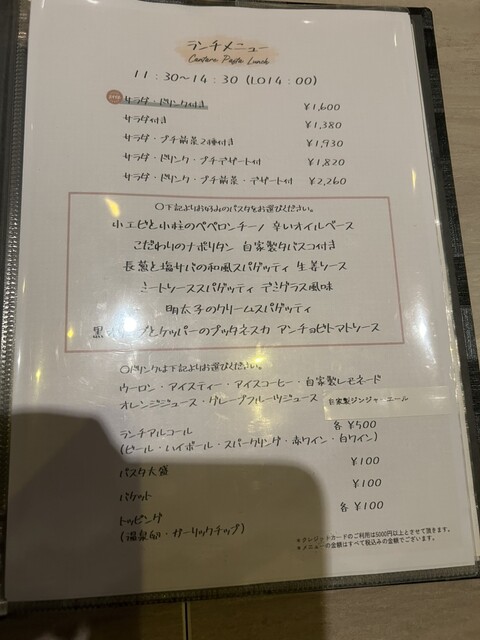 ランチメニュー
Cantero Pasta Lunch
11:30〜14:30 (LO14:00)
サラダ・ドリンク付き ¥1,600
サラダ付き ¥1,380
サラダ・プチ前菜2種付き ¥1,930
サラダ・ドリンク・プチデザート付 ¥1,820
サラダ・ドリンク・プチ前菜・デザート付 ¥2,260
〇下記よりお好みのパスタをお選びください。
小エビと小柱のペペロンチーノ 辛いオイルベース
こだわりのナポリタン 自家製タバスコ付き
長葱と塩サバの和風スパゲッティ 生姜ソース
ミートソーススパゲッティ デミグラス風味
明太子のクリームスパゲッティ
黒オリーブとケッパーのプッタネスカ アンチョビトマトソース
〇ドリンクは下記よりお選びください。
ウーロン・アイスティー・アイスコーヒー・自家製レモネード
オレンジジュース・グレープフルーツジュース 自家製ジンジャーエール
ランチアルコール 各 ¥500
(ビール・ハイボール・スパークリング・赤ワイン・白ワイン)
パスタ大盛 ¥100
バケット ¥100
トッピング 各 ¥100
(温泉卵・ガーリックチップ)
＊クレジットカードのご利用は5000円以上とさせて頂きます。
＊メニューの金額はすべて税込みの金額でございます。